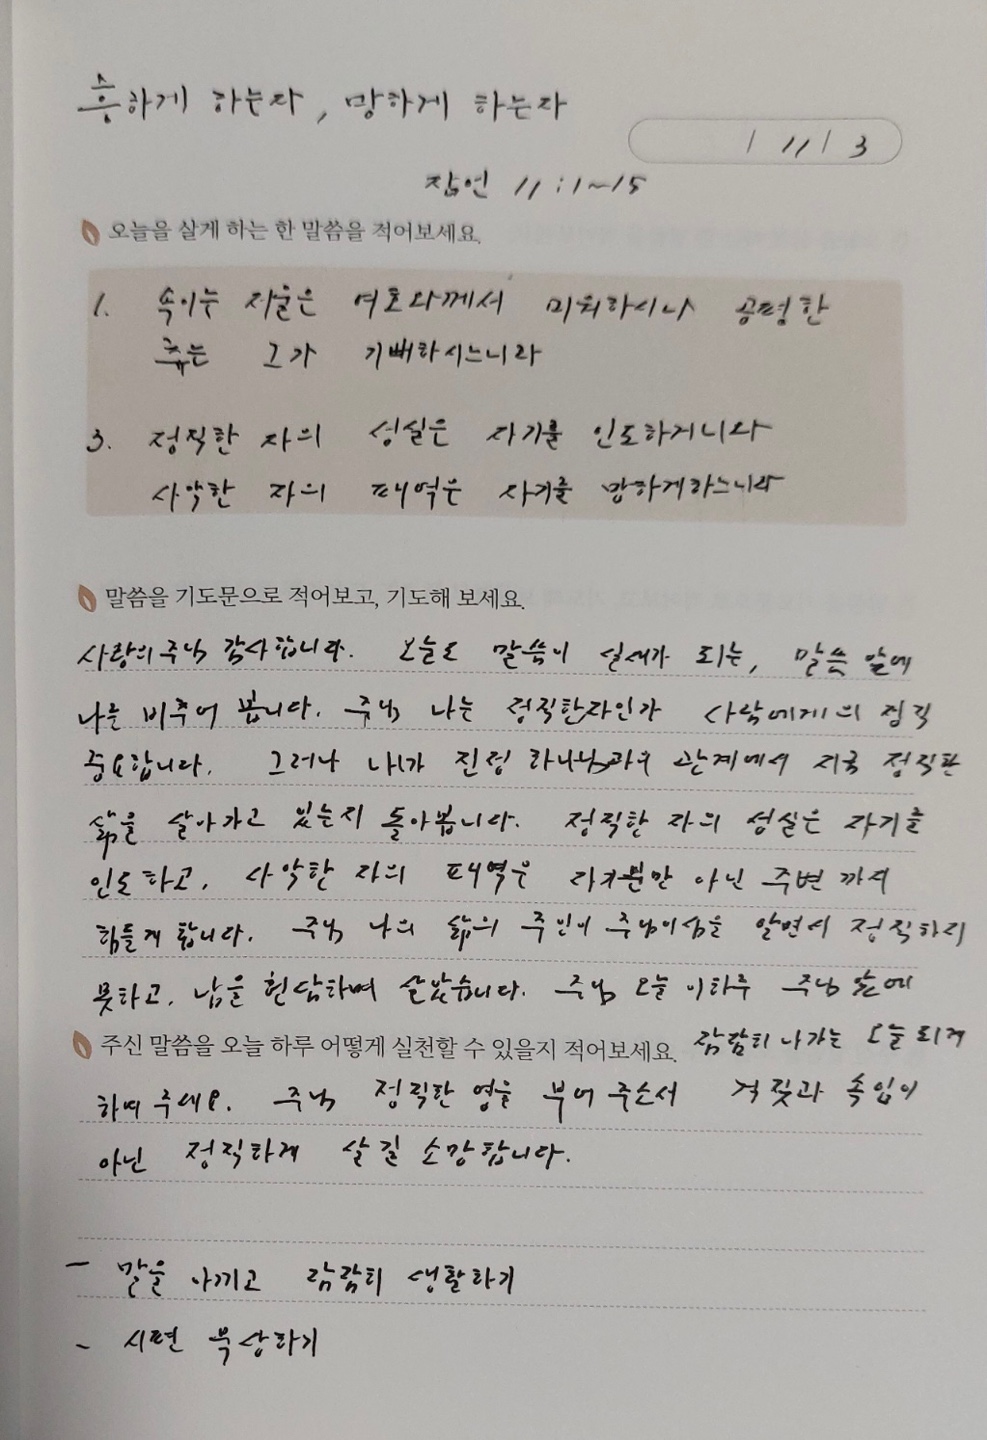 흥하게 하는자, 망하게 하는자
/ 11 / 3
잠언 11:1~15
오늘을 살게 하는 한 말씀을 적어보세요.
1. 속이는 저울은 여호와께서 미워하시나 공평한
추는 그가 기뻐하시느니라
3. 정직한 자의 성실은 자기를 인도하거니와
사악한 자의 패역은 자기를 망하게하느니라
말씀을 기도문으로 적어보고, 기도해 보세요.
사랑의 주님 감사합니다. 오늘도 말씀이 실세가 되는, 말씀 앞에
나는 비추어 봅니다. 주님 나는 정직한자인가 사람에게의 정직
중요합니다. 그러나 내가 진정 하나님과의 관계에서 정직한
삶을 살아가고 있는지 돌아봅니다. 정직한 자의 성실은 자기를
인도하고, 사악한 자의 패역은 자기뿐만 아닌 주변 까지
힘들게 합니다. 주님 나의 삶의 주인이 주님이심을 알면서 정직하지
못하고, 남을 험담하며 살았습니다. 주님 오늘 이하루 주님 앞에
주신 말씀을 오늘 하루 어떻게 실천할 수 있을지 적어보세요.
잠잠히 나가는 오늘 되게
하여 주세요. 주님 정직한 영을 부어 주소서 거짓과 속임이
아닌 정직하게 살길 소망합니다.
- 말을 아끼고 잠잠히 생활하기
- 시편 묵상하기